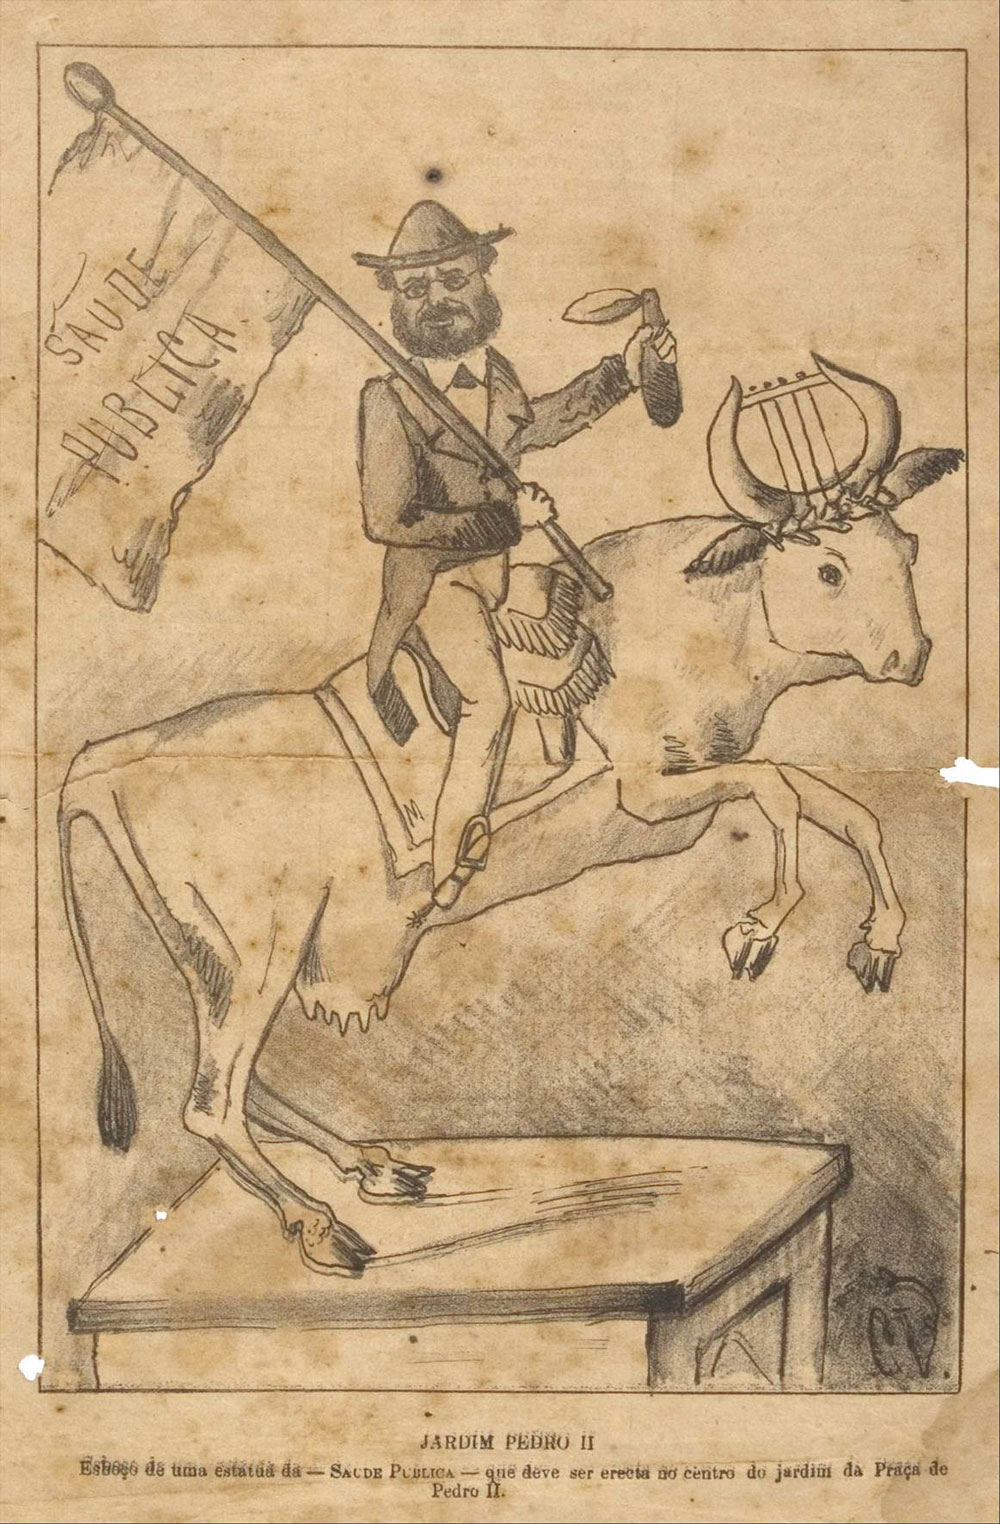 SAUDE
PUBLICA
M
JARDIM PEDRO II
Esboço de uma estatua da — SAUDE PUBLICA — que deve ser erecta no centro do jardim da Praça de
Pedro II.